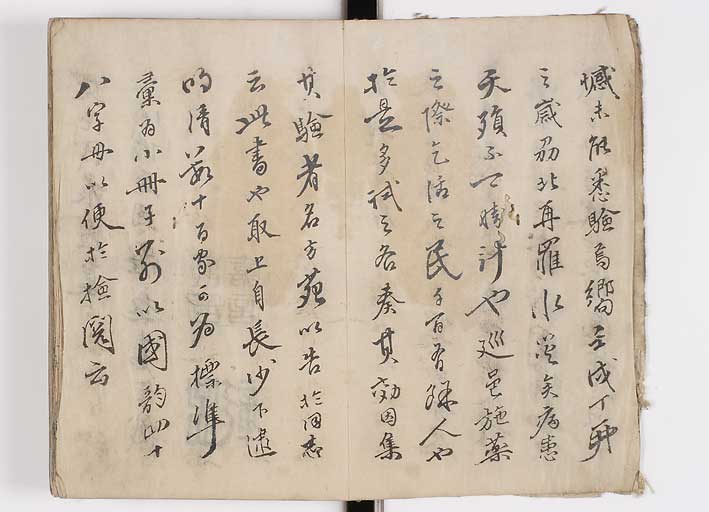 憾未能悉驗焉嚮戌丁
之歳羽北再罹水災矣病患
夭殞不可勝計也巡邑施薬
之際乞活之民千百有餘人也
於是多試之各奏其効因集
其驗者名方苑以告於同志
云此書也取上自長沙下逮
明清十百家可為標準
彙為小冊子別以國韵四十
八字母以便於撿閲云